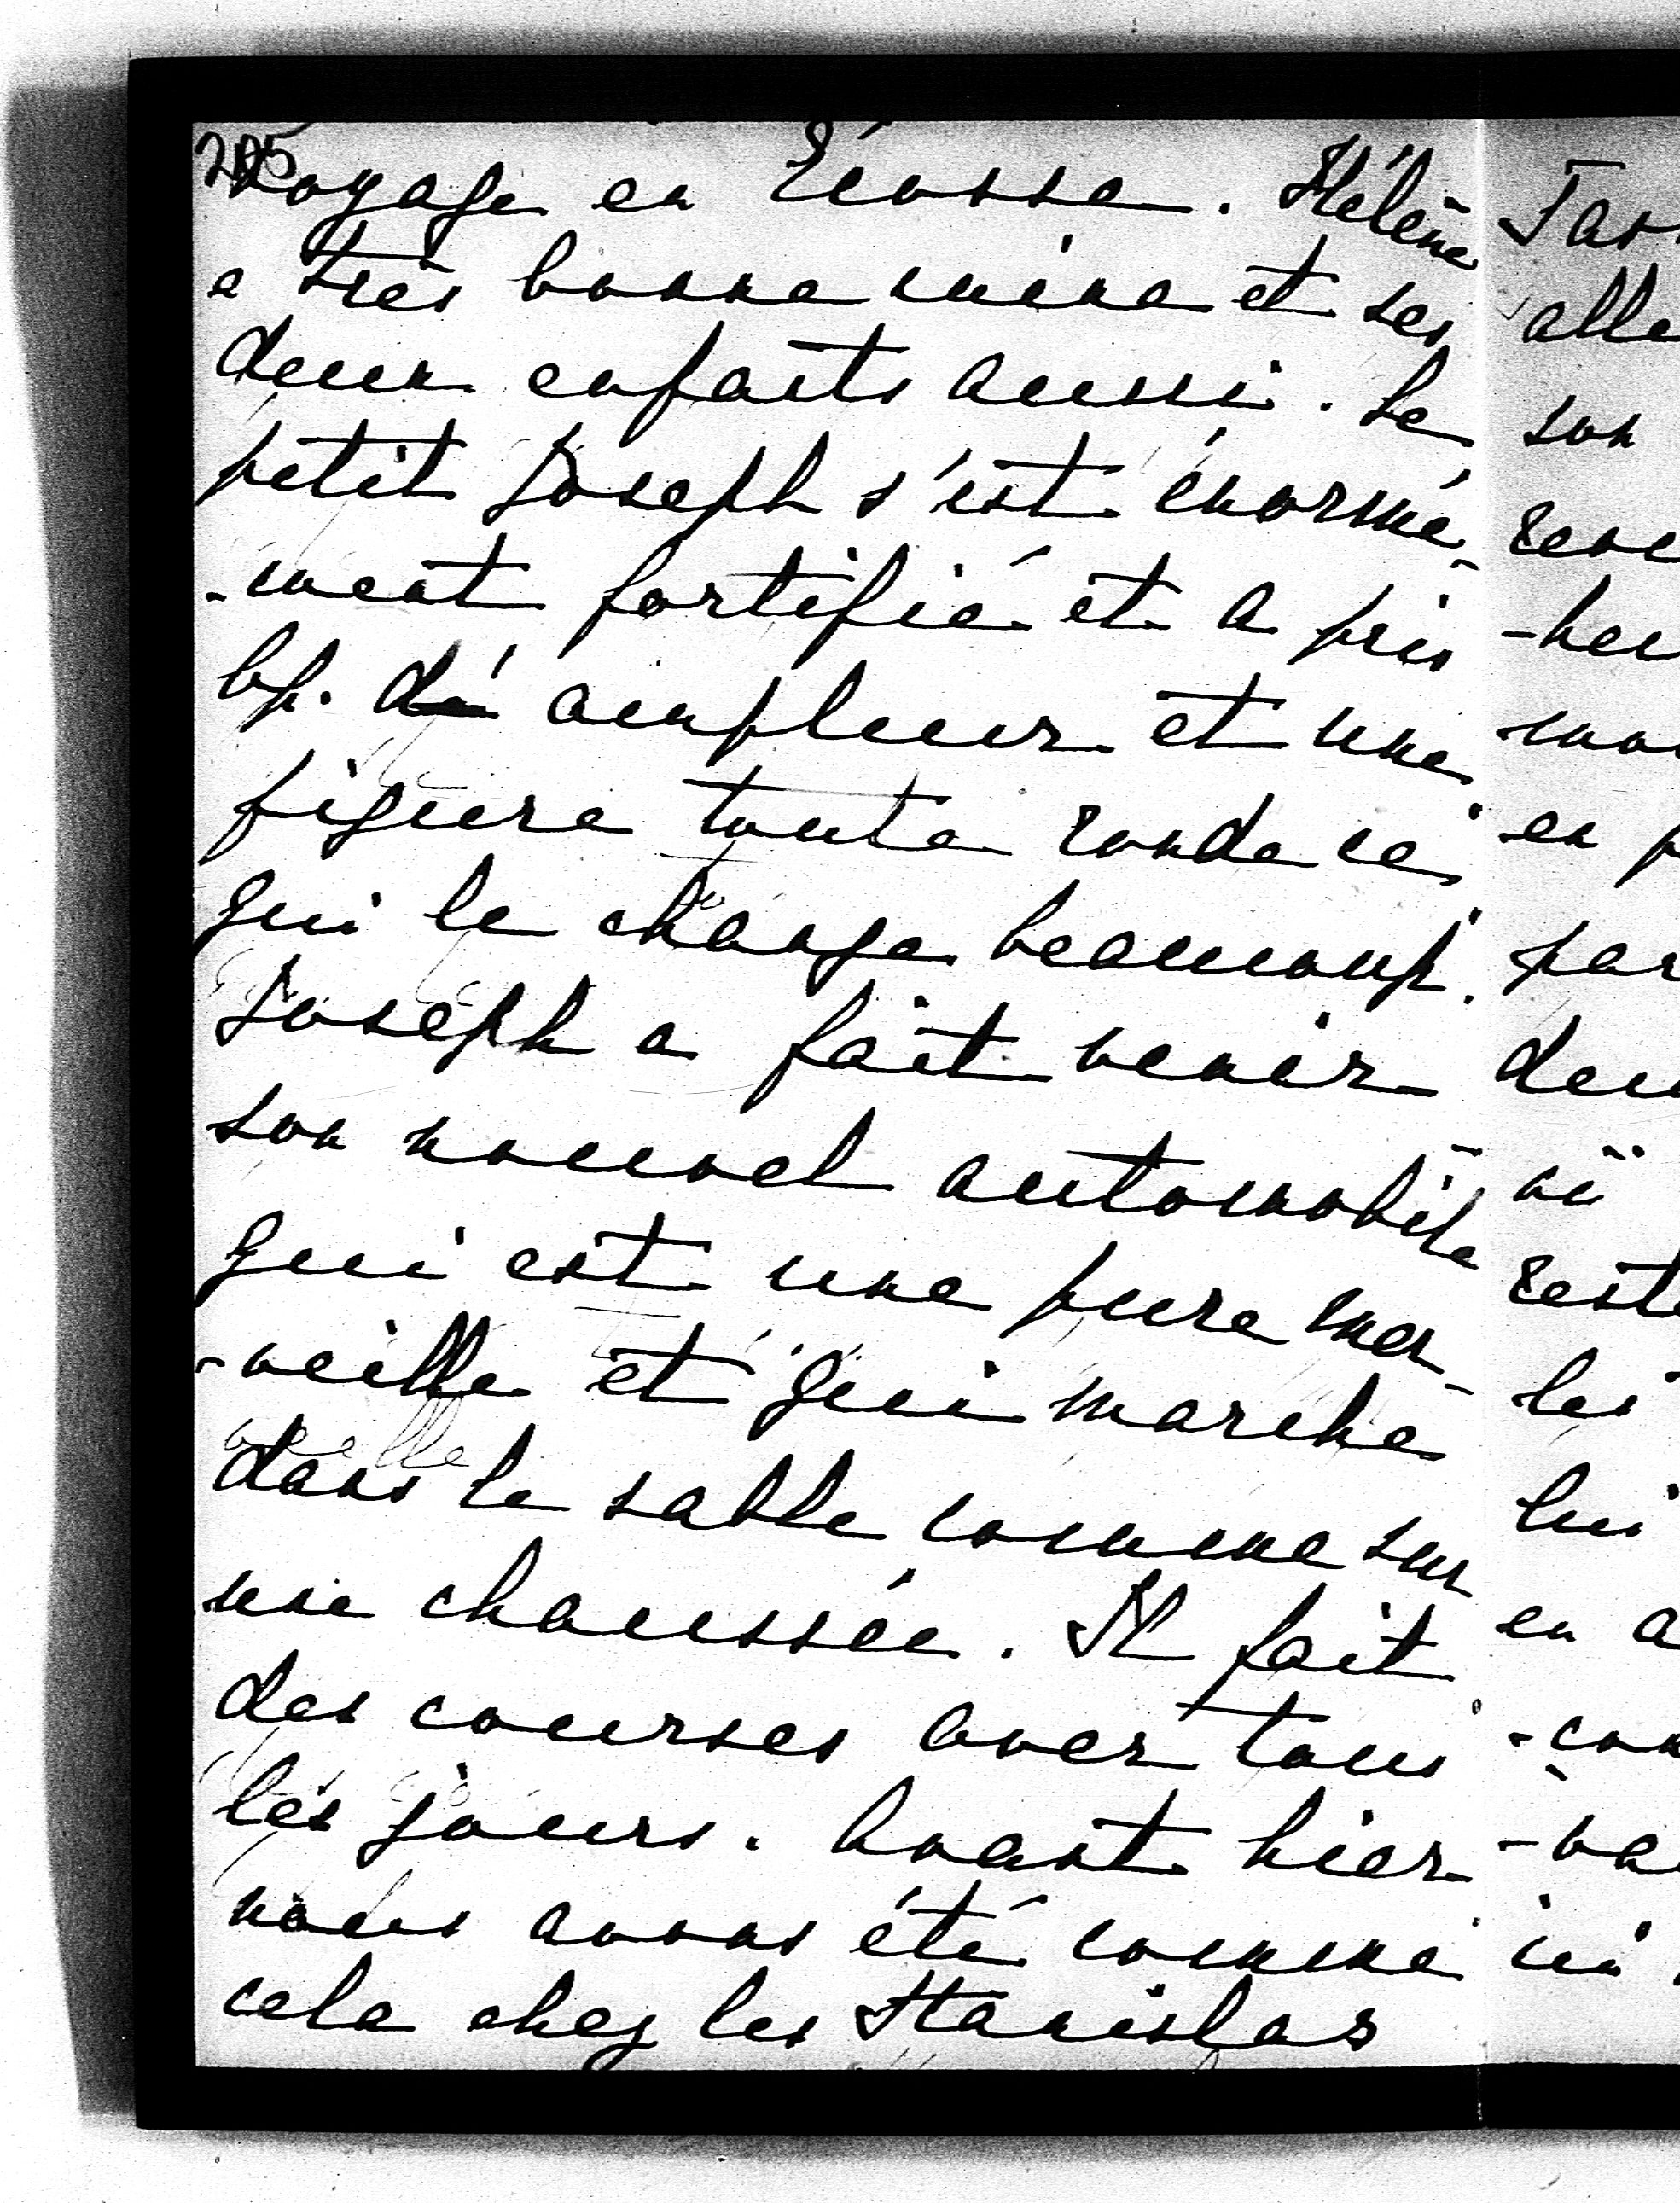 205
voyage en Ecosse. Hélène
a très bonne mine et ses
deux enfants aussi. Le
petit Joseph s'est énormé-
-ment fortifié et a pris
bp. d' ampleur et une
figure toute ronde ce
qui le change beaucoup.
Joseph a fait venir
son nouvel automobile
qui est une pure mer-
-veille et qui marche
dans le sable comme sur
une chaussée. Il fait
des courses avec tous
les jours. Avant hier
nous avons été comme
cela chez les Stanislas
alle
son
-heu
en p
par
deu
où
reste
les
lui
en a
-con
-va